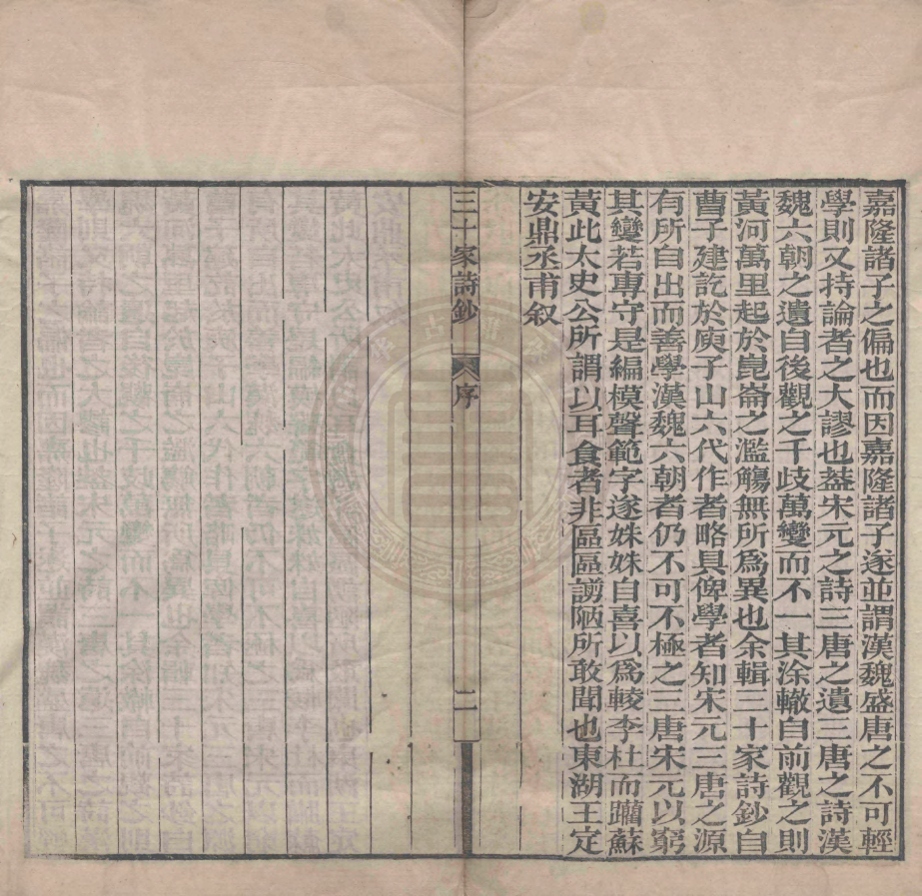 嘉隆諸子之偏也而因嘉隆諸子遂並謂漢魏盛唐之不可輕
學則又持論者之大謬也葢宋元之詩三唐之遺三唐之詩漢
魏六朝之遺自後觀之千歧萬變而不一其涂轍自前觀之則
黃河萬里起於崑崙之濫觴無所爲異也余輯三十家詩鈔自
曹子建訖於庾子山六代作者略具俾學者知宋元三唐之源
有所自出而善學漢魏六朝者仍不可不極之三唐宋元以窮
其變若專守是編模聲範字遂姝姝自喜以爲較李杜而躪蘇
黃此太史公所謂以耳食者非區區謭陋所敢聞也東湖王定
安鼎丞甫叙
三十家詩鈔 序 二